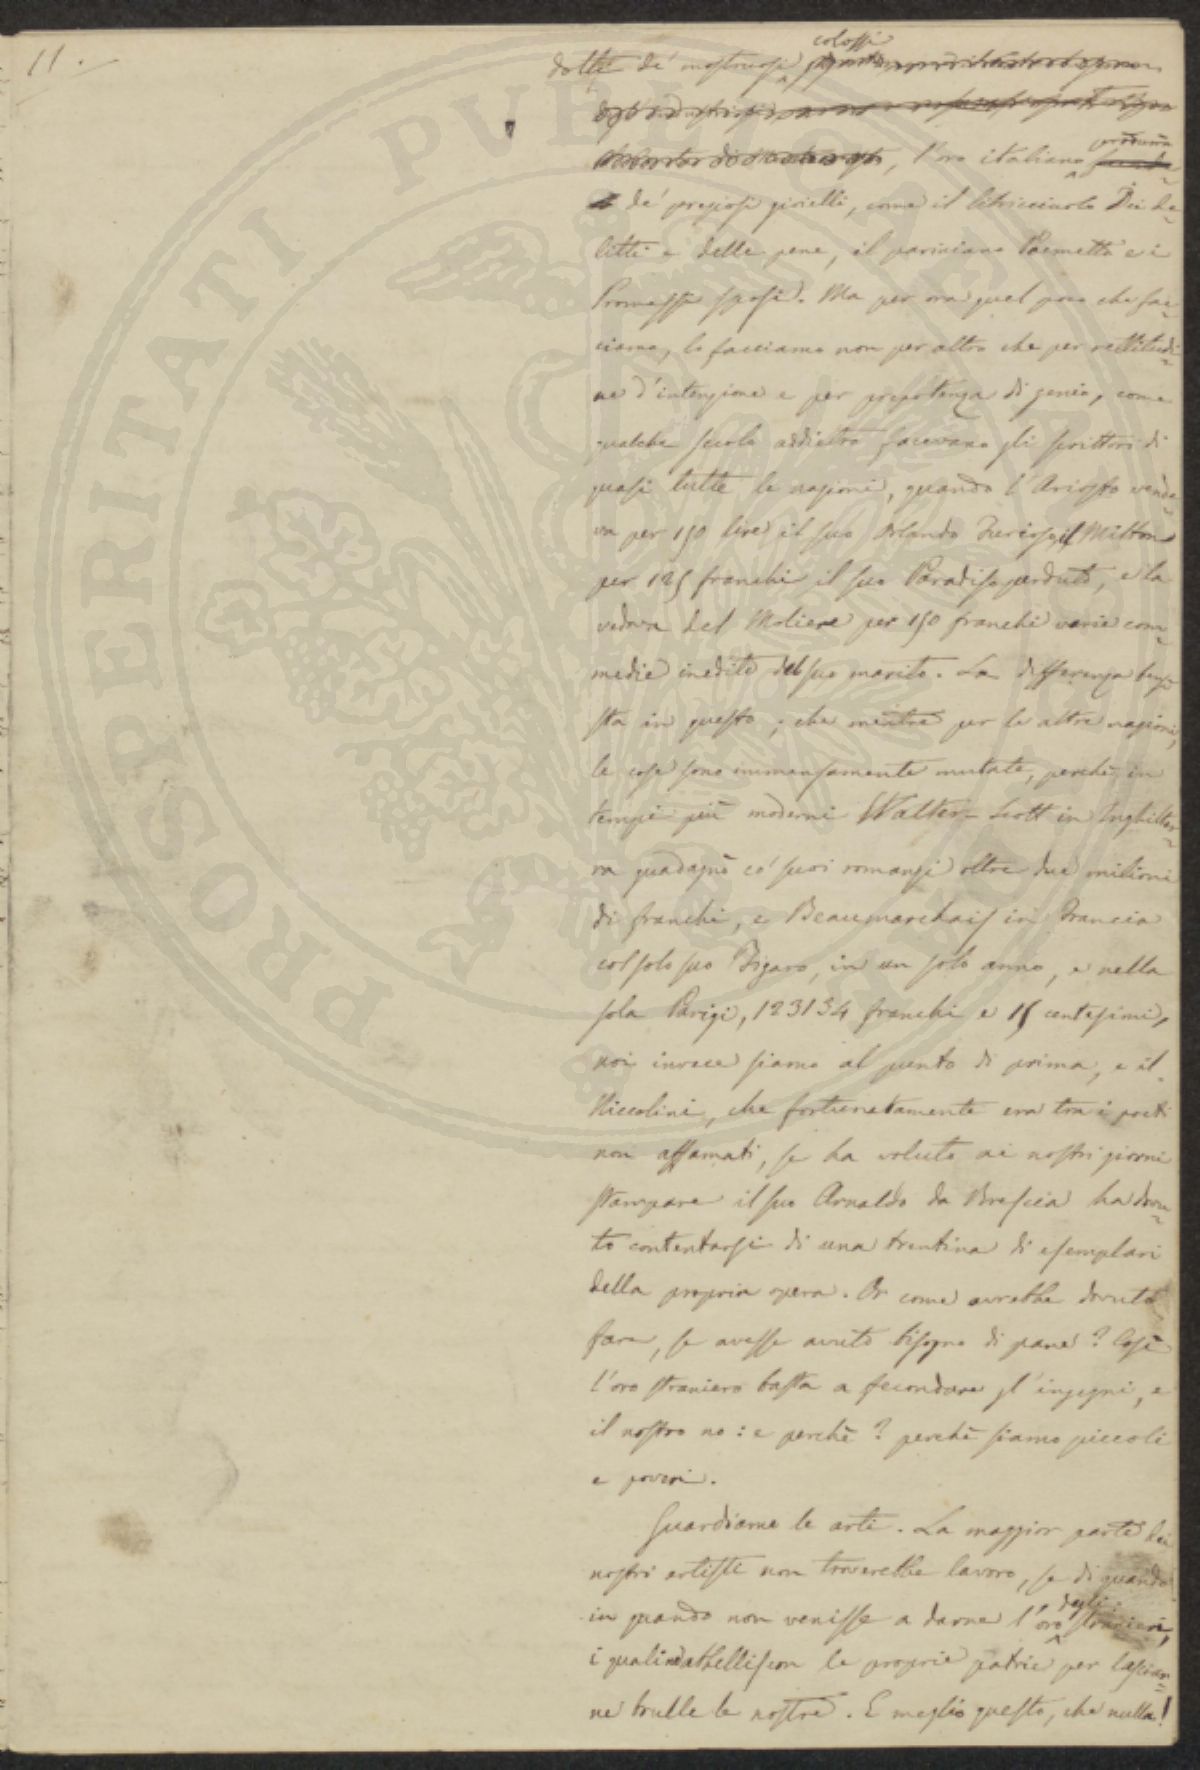 11.
dotto de' mostruosi colossi
, l'oro italiano produrrà
de' preziosi gioielli, come il libricciuolo Dei de-
litti e delle pene, il pariniano Poemetto e i
Promessi sposi. Ma per ora quel poco che fac-
ciamo, lo facciamo non per altro che per rettitudi-
ne d'intenzione e per prepotenza di genio, come
qualche secolo addietro facevano gli scrittori di
quasi tutte le nazioni, quando l'Ariosto vende-
va per 150 lire il suo Orlando Furioso, il Milton
per 125 franchi il suo Paradiso perduto, e la
vedova del Moliere per 150 franchi varie com-
medie inedite del suo marito. La differenza bensì
sta in questo, che mentre per le altre nazioni,
le cose sono immensamente mutate, perchè in
tempi più moderni Walter-Scott in Inghilter-
ra guadagnò co' suoi romanzi oltre due milioni
di franchi, e Beaumarchais in Francia
col solo suo Figaro, in un solo anno, e nella
sola Parigi, 123134 franchi e 15 centesimi,
noi invece siamo al punto di prima, e il
Niccolini, che fortunatamente era tra i poeti
non affamati, se ha voluto ai nostri giorni
stampare il suo Arnaldo da Brescia ha dovu-
to contentarsi di una trentina di esemplari
della propria opera. Or come avrebbe dovuto
fare, se avesse avuto bisogno di pane? Così
l'oro straniero basta a fecondare gl'ingegni, e
il nostro no: e perchè? perchè siamo piccoli
e poveri.
Guardiamo le arti. La maggior parte dei
nostri artisti non troverebbe lavoro, se di quando
in quando non venisse a darne l'oro degli stranieri,
i quali rabbelliscon le proprie patrie per lasciar-
ne brulle le nostre. E meglio questo, che nulla!